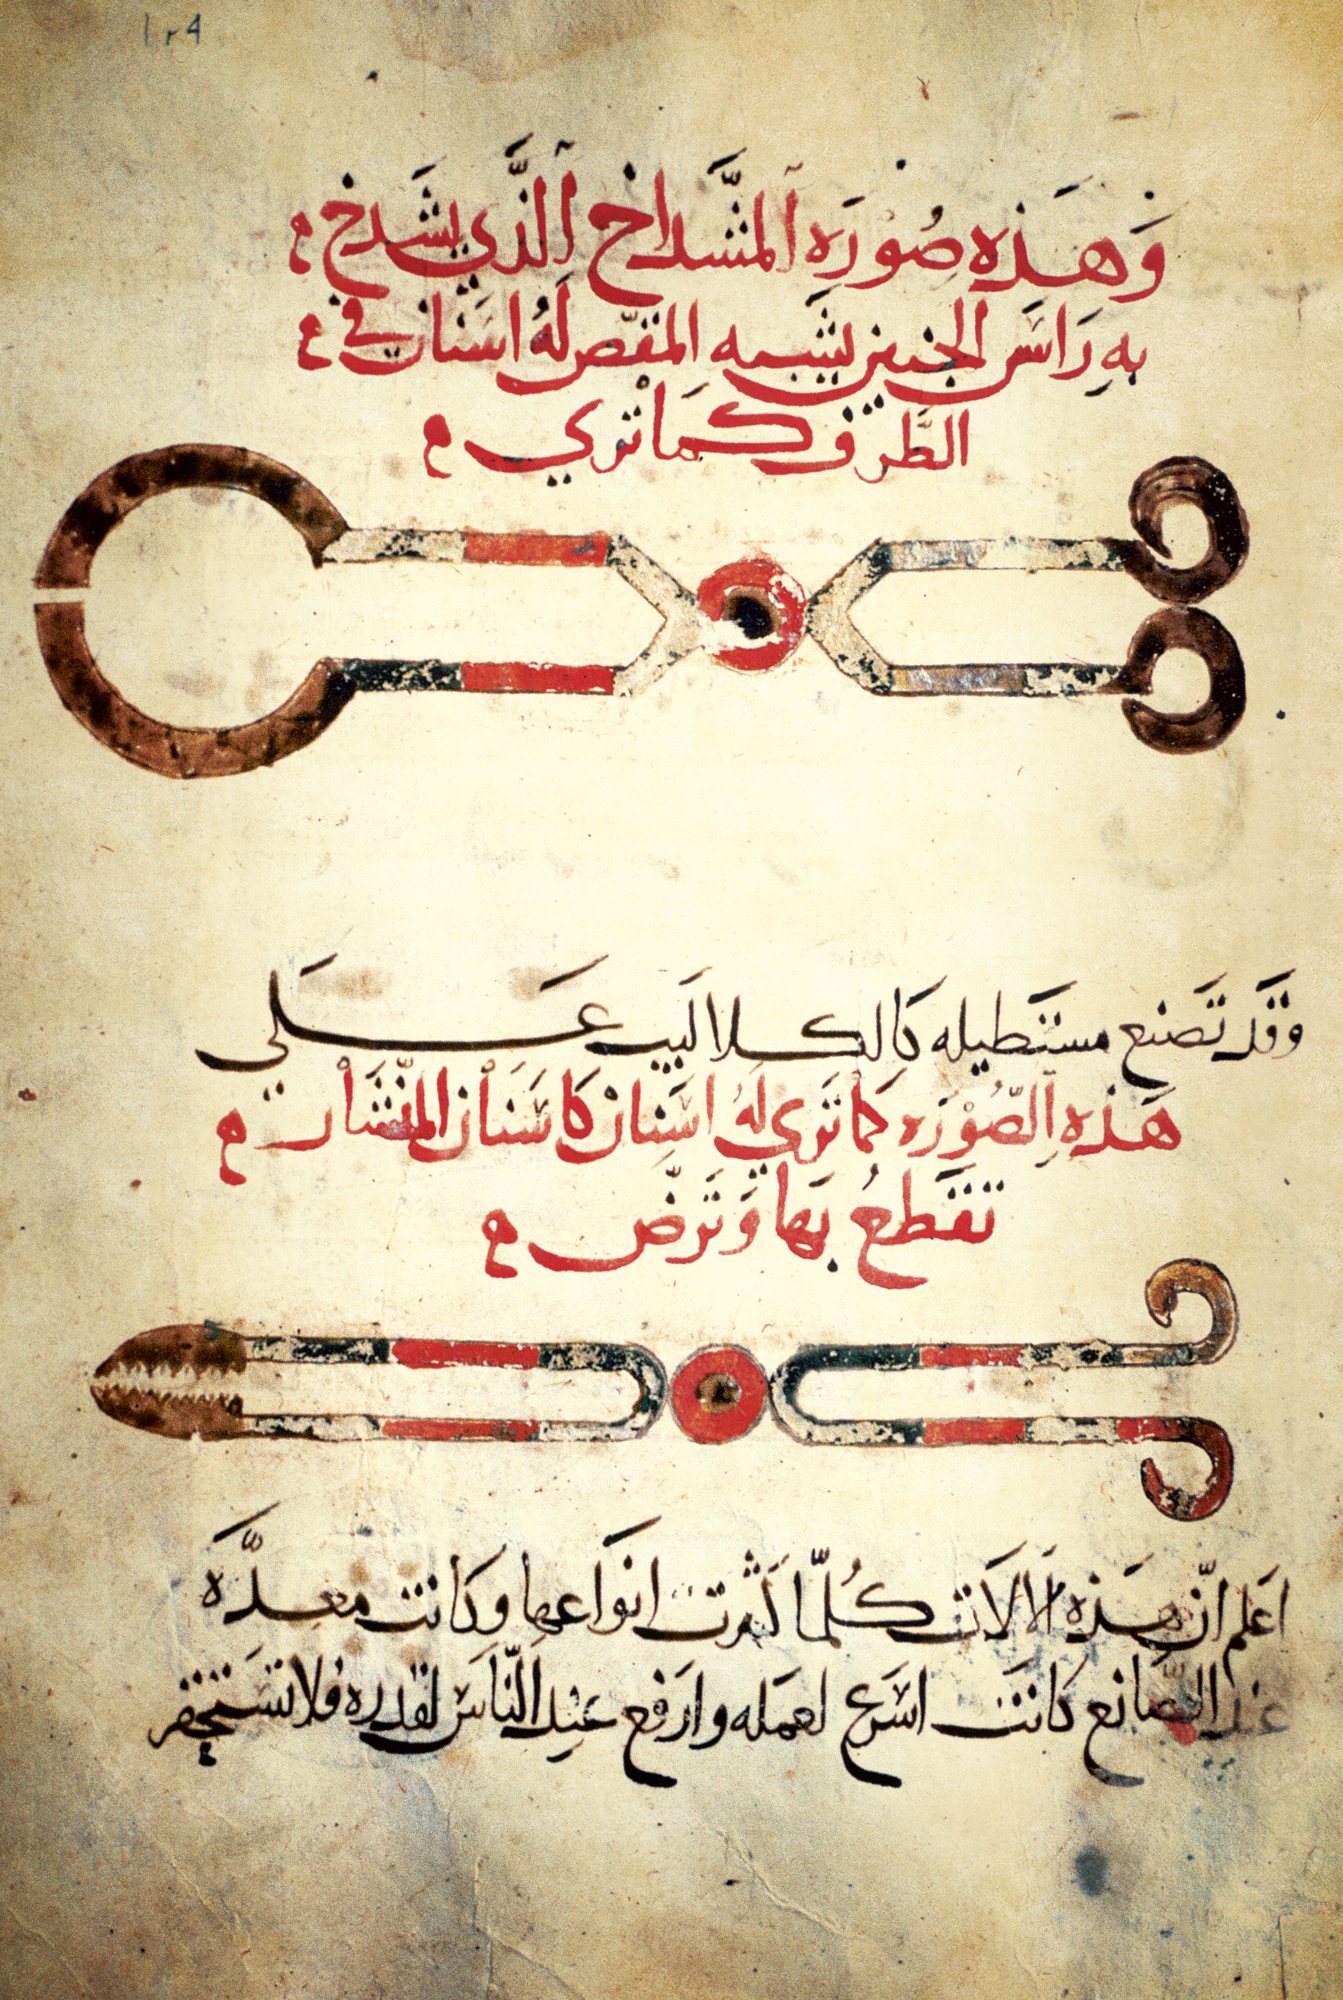 ١٢٩
وَهَذِه صُورَه المِشْدَاخ الَّذِي يشَدخ
بهِ رَاسَ الجنين يشبه المقَص لَهُ اسنَان في
الطَّرف كمَا تري
وقَد تَصنع مستَطيله كَالكلاليب عَلَي
هَذِه الصُّوْرَه كمَا تَري لَهُ اسنَان كاسَنان المنْشَار
تقَطعُ بهَا وَتَرضّ
اعَلم انّ هَذِه الالاَت كُلمّا كَثرت انوَاعهَا وكَانت معدَّه
عند الصَّانع كَانَت اسْرع لعمَله وارَفع عند النّاسَ لقدره فلا تسَتحقر